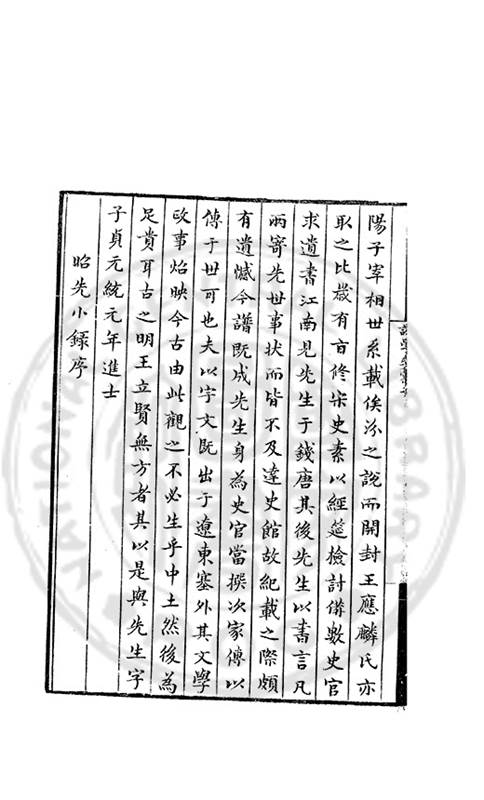 陽子宰相世系載俟汾之說而開封王應麟氏亦
取之比歲有旨修宋史素以經筵檢討備數史官
求遺書江南見先生于錢唐其後先生以書言凡
兩寄先世事状而皆不及達史館故紀載之際頗
有遺憾今譜既成先生身為史官當撰次家傳以
傳于世可也夫以宇文既出于遼東塞外其文學
政事炤映今古由此觀之不必生乎中土然後為
足貴耳古之明王立賢無方者其以是與先生字
子貞元統元年進士
昭先小錄序